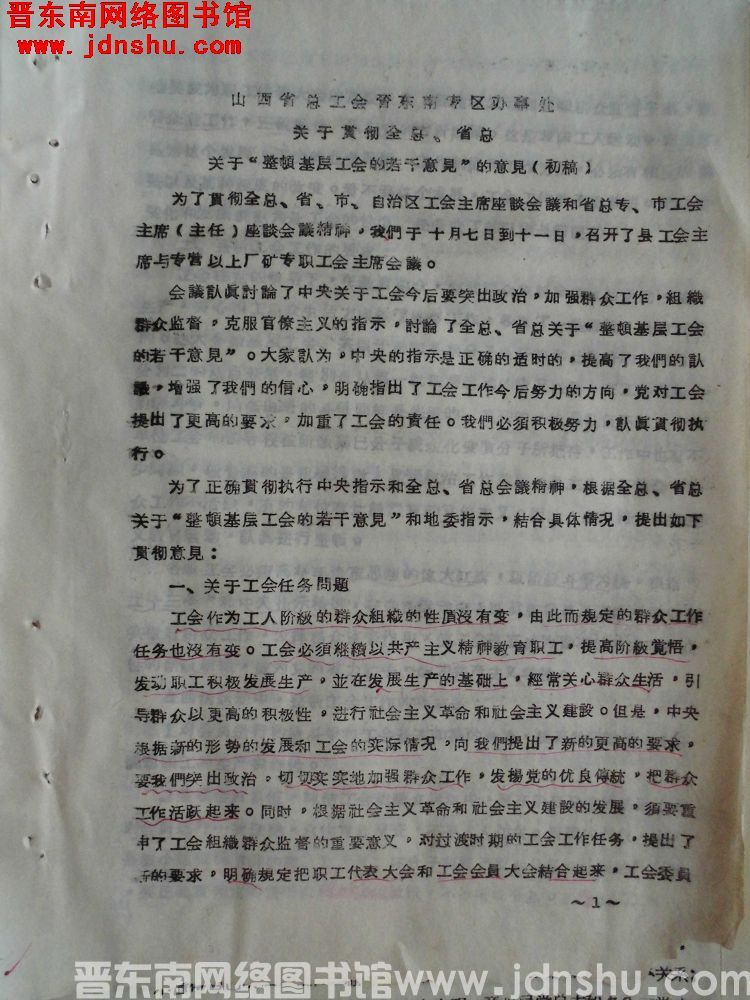 晋东南网络图书馆
www.jdnshu.com
山西省总工会晋东南专区办事处
关于貫彻全总、省总
关于“整頓基层工会的若干意見”的意見(初稿)
为了貫彻全总、省、市、自治区工会主席座談会議和省总专、市工会
主席(主任)座談会議精神,我們于十月七日到十一日,召开了县工会主
席与专营以上厂矿专职工会主席会議。
会議認眞討論了中央关于工会今后要突出政治,加强群众工作,組織
群众监督,克服官僚主义的指示,討論了全总、省总关于“整頓基层工会
的若干意見”。大家認为,中央的指示是正确的适时的,提高了我們的認
識,增强了我們的信心,明确指出了工会工作今后努力的方向,党对工会
提出了更高的要求,加重了工会的责任。我們必須积极努力,認眞貫彻执
行。
为了正确貫彻执行中央指示和全总、省总会議精神,根据全总、省总
关于“整頓基层工会的若干意見”和地委指示,結合具体情况,提出如下
貫彻意見:
一、关于工会任务問題
工会作为工人阶級的群众組織的性质沒有变,由此而規定的群众工作
任务也沒有变。工会必須継續以共产主义精神教育职工,提高阶級覚悟,
发动职工积极发展生产,並在发展生产的基础上,經常关心群众生活,引
导群众以更高的积极性,进行社会主义革命和社会主义建設。但是,中央
根据新的形势的发展和工会的实际情况,向我們提出了新的更高的要求,
要我們突出政治,切切实实地加强群众工作,发揚党的优良传統,把群众
工作活跃起来。同时,根据社会主义革命和社会主义建設的发展,须要重
申了工会組織群众监督的重要意义,对过渡时期的工会工作任务,提出了
新的要求,明确規定把职工代表大会和工会会員大会結合起来,工会委員
~1~
关系
晋东南网络图书馆www.jdnshu.com